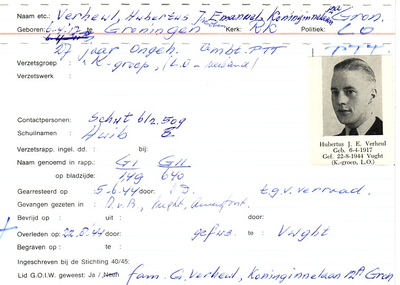 Naam etc.: Verheul, Hubertus J. Emanuel, Koninginnelaan 12A Gron.
Geboren: 6-4-17 Groningen Kerk: RK Politiek: LO
27 jaar Ongeh. Ambt. PTT
Verzetsgroep : K-groep, (L.O.
Verzetswerk :
Contactpersonen: Schut blz. 509
Schuilnamen : Huib
Verzetsrapp. ingel. dd. : bij:
Naam genoemd in rapp.: GI GII
op bladzijde: 149 640
Gearresteerd op : 5-6-44 door: t.g.v. verraad.
Gevangen gezeten in : Vught, Amersfoort.
Bevrijd op : uit : door:
Overleden op : 22-8-44 door: gefus. te : Vught
Begraven op : te :
Ingeschreven bij de Stichting 40/45:
Lid G.O.I.W. geweest: Ja / Neen fam. G. Verheul, Koninginnelaan 12A Gron
Hubertus J. E. Verheul
Geb. 6-4-1917
Gef. 22-8-1944 Vught
(K-groep, L.O.)